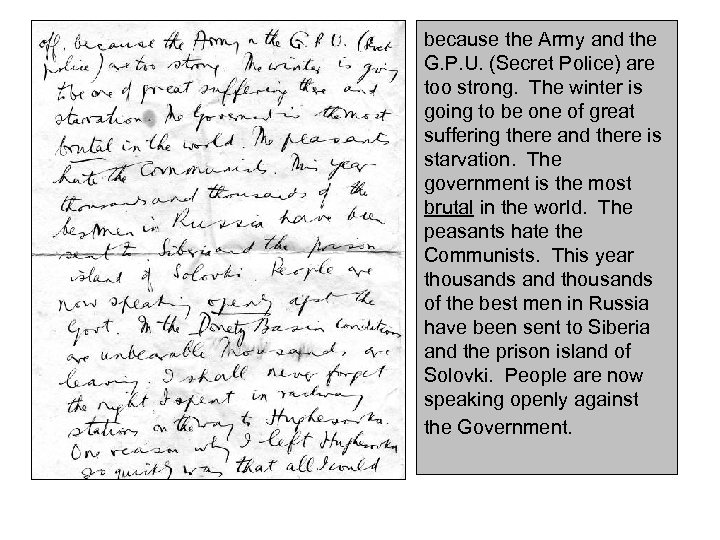 off, because the Army & the G.P.U. (Secret
police) are too strong. The winter is going
to be one of great suffering there and
starvation. The Government is the most
brutal in the world. The peasants
hate the Communists. This year
thousands and thousands of the
best men in Russia have been
sent to Siberia and the prison
island of Solovki. People are
now speaking openly agst the
Govt. In the Donetz Basin conditions
are unbearable. Thousands are
leaving. I shall never forget
the night I spent in railway
station on the way to Hughesovka.
One reason why I left Hughesovka
so quickly was that all I could
because the Army and the
G.P.U. (Secret Police) are
too strong. The winter is
going to be one of great
suffering there and there is
starvation. The
government is the most
brutal in the world. The
peasants hate the
Communists. This year
thousands and thousands
of the best men in Russia
have been sent to Siberia
and the prison island of
Solovki. People are now
speaking openly against
the Government.